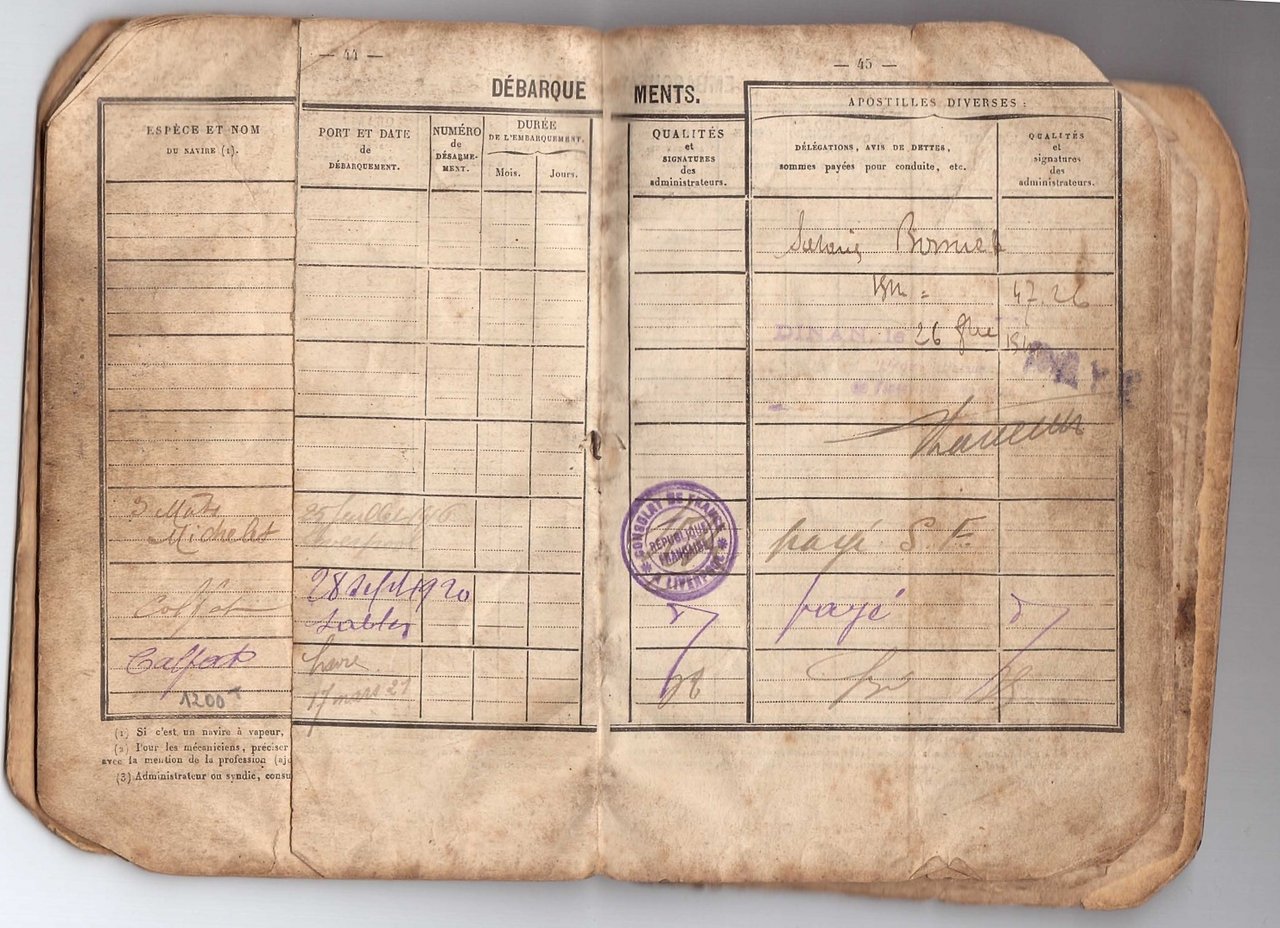 — 44 —
— 45 —
DÉBARQUE MENTS.
ESPÈCE ET NOM
DU NAVIRE (1).
PORT ET DATE
de
DÉBARQUEMENT.
NUMÉRO
de
DÉSARME-
MENT.
DURÉE
DE L'EMBARQUEMENT.
Mois.
Jours.
QUALITÉS
et
SIGNATURES
des
administrateurs.
APOSTILLES DIVERSES :
DÉLÉGATIONS, AVIS DE DETTES,
sommes payées pour conduite, etc.
QUALITÉS
et
signatures
des
administrateurs.
47.26
DINAN, le 26
3 Mâts
Michelet
CONSULAT DE FRANCE
RÉPUBLIQUE
FRANÇAISE
A LIVERPOOL
payé S F.
28 sept 1920
Sables
payé
havre
17 mars 21
1200 T
(1) Si c'est un navire à vapeur,
(2) Pour les mécaniciens, préciser
avec la mention de la profession (ajo
(3) Administrateur ou syndic, consu